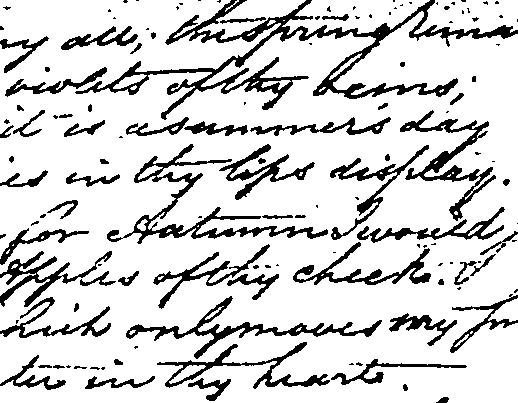 my all; the spring rema
violets of thy veins;
it is a summer's day
ies in thy lips display.
for Autumn I would
Apples of thy cheek.
hich only moves my
ter in thy heart.